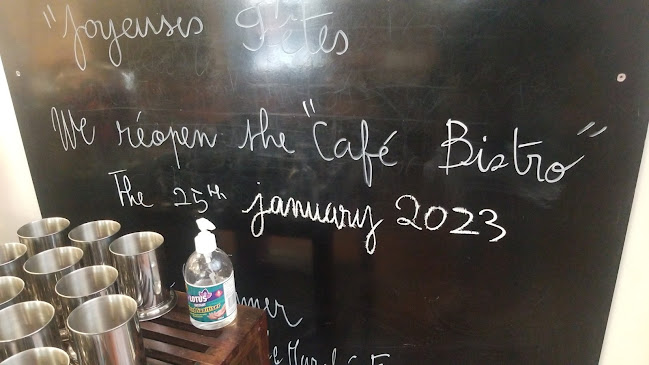 "Joyeuses Fêtes
We réopen the "Café Bistro"
The 25th january 2023
LOTUS